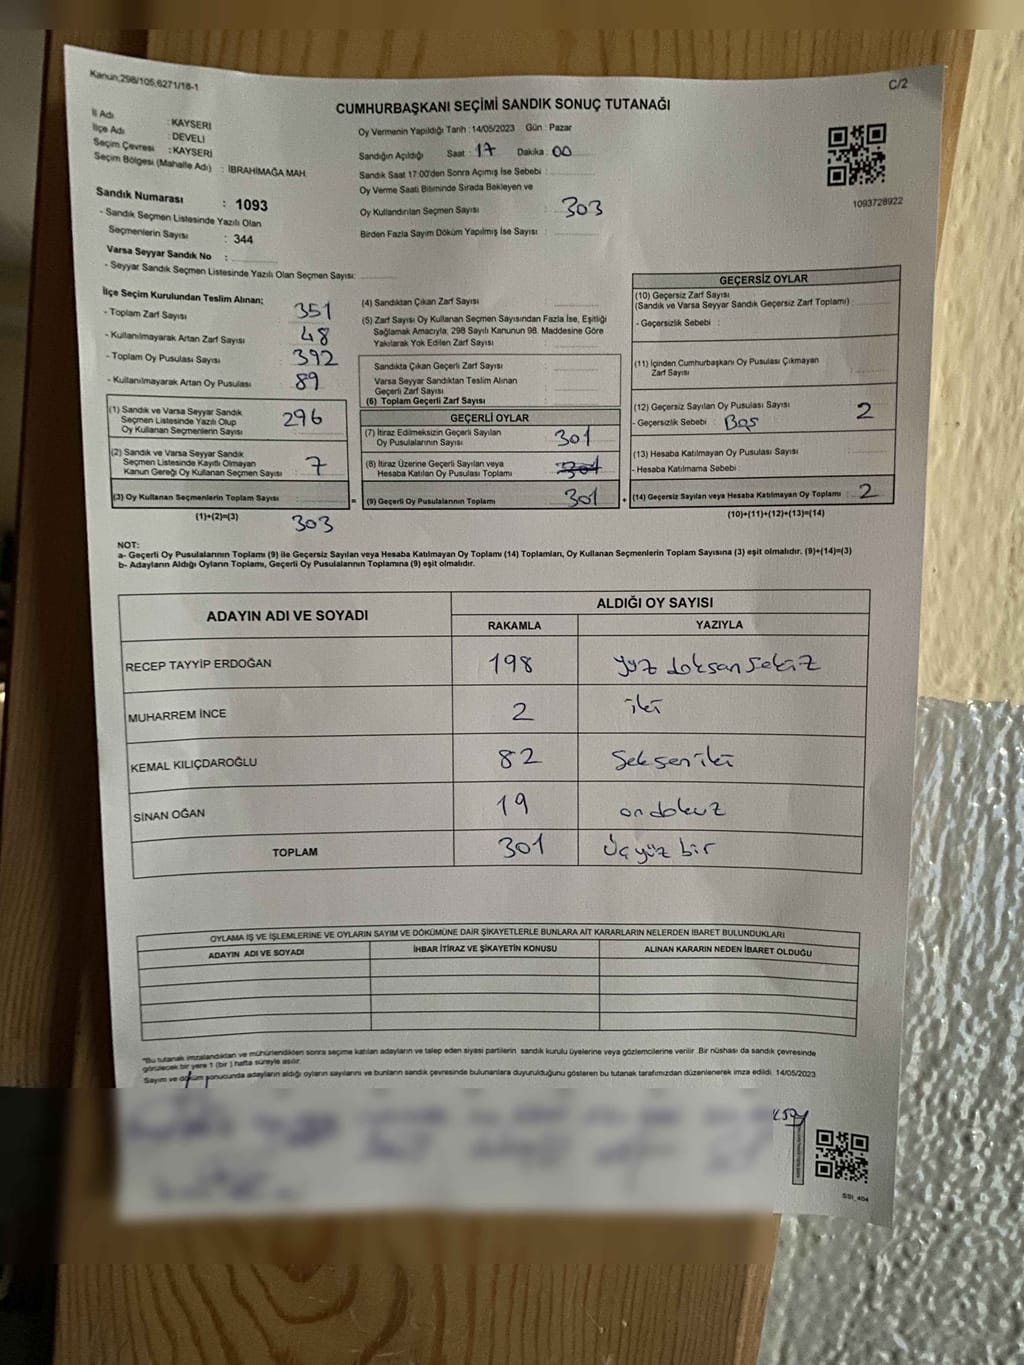 Kanun,298/105,6271/18-1
C/2
CUMHURBAŞKANI SEÇİMİ SANDIK SONUÇ TUTANAĞI
İl Adı : KAYSERİ
İlçe Adı : DEVELİ
Seçim Çevresi : KAYSERİ
Seçim Bölgesi (Mahalle Adı) : İBRAHİMAĞA MAH.
Sandık Numarası : 1093
- Sandık Seçmen Listesinde Yazılı Olan
Seçmenlerin Sayısı : 344
Varsa Seyyar Sandık No :
- Seyyar Sandık Seçmen Listesinde Yazılı Olan Seçmen Sayısı:
Oy Vermenin Yapıldığı Tarih :14/05/2023 Gün : Pazar
Sandığın Açıldığı Saat : 17 Dakika : 00
Sandık Saat 17:00'den Sonra Açımış İse Sebebi :
Oy Verme Saati Bitiminde Sırada Bekleyen ve
Oy Kullandırılan Seçmen Sayısı : 303
Birden Fazla Sayım Döküm Yapılmış İse Sayısı :
1093728922
İlçe Seçim Kurulundan Teslim Alınan;
- Toplam Zarf Sayısı 351
- Kullanılmayarak Artan Zarf Sayısı 48
- Toplam Oy Pusulası Sayısı 392
- Kullanılmayarak Artan Oy Pusulası 89
(1) Sandık ve Varsa Seyyar Sandık
Seçmen Listesinde Yazılı Olup
Oy Kullanan Seçmenlerin Sayısı : 296
(2) Sandık ve Varsa Seyyar Sandık
Seçmen Listesinde Kayıtlı Olmayan
Kanun Gereği Oy Kullanan Seçmen Sayısı : 7
(3) Oy Kullanan Seçmenlerin Toplam Sayısı :
(1)+(2)=(3) 303
(4) Sandıktan Çıkan Zarf Sayısı :
(5) Zarf Sayısı Oy Kullanan Seçmen Sayısından Fazla İse, Eşitliği
Sağlamak Amacıyla, 298 Sayılı Kanunun 98. Maddesine Göre
Yakılarak Yok Edilen Zarf Sayısı :
Sandıkta Çıkan Geçerli Zarf Sayısı :
Varsa Seyyar Sandıktan Teslim Alınan
Geçerli Zarf Sayısı :
(6) Toplam Geçerli Zarf Sayısı :
GEÇERLİ OYLAR
(7) İtiraz Edilmeksizin Geçerli Sayılan
Oy Pusulalarının Sayısı : 301
(8) İtiraz Üzerine Geçerli Sayılan veya
Hesaba Katılan Oy Pusulası Toplamı : 301
(9) Geçerli Oy Pusulalarının Toplamı : 301
=
+
GEÇERSİZ OYLAR
(10) Geçersiz Zarf Sayısı
(Sandık ve Varsa Seyyar Sandık Geçersiz Zarf Toplamı) :
- Geçersizlik Sebebi :
(11) İçinden Cumhurbaşkanı Oy Pusulası Çıkmayan
Zarf Sayısı :
(12) Geçersiz Sayılan Oy Pusulası Sayısı : 2
- Geçersizlik Sebebi : Boş
(13) Hesaba Katılmayan Oy Pusulası Sayısı :
- Hesaba Katılmama Sebebi :
(14) Geçersiz Sayılan veya Hesaba Katılmayan Oy Toplamı : 2
(10)+(11)+(12)+(13)=(14)
NOT:
a- Geçerli Oy Pusulalarının Toplamı (9) ile Geçersiz Sayılan veya Hesaba Katılmayan Oy Toplamı (14) Toplamları, Oy Kullanan Seçmenlerin Toplam Sayısına (3) eşit olmalıdır. (9)+(14)=(3)
b- Adayların Aldığı Oyların Toplamı, Geçerli Oy Pusulalarının Toplamına (9) eşit olmalıdır.
ADAYIN ADI VE SOYADI
ALDIĞI OY SAYISI
RAKAMLA YAZIYLA
RECEP TAYYİP ERDOĞAN 198 yüz doksan sekiz
MUHARREM İNCE 2 iki
KEMAL KILIÇDAROĞLU 82 Seksen iki
SİNAN OĞAN 19 on dokuz
TOPLAM 301 Üç yüz bir
OYLAMA İŞ VE İŞLEMLERİNE VE OYLARIN SAYIM VE DÖKÜMÜNE DAİR ŞİKAYETLERLE BUNLARA AİT KARARLARIN NELERDEN İBARET BULUNDUKLARI
ADAYIN ADI VE SOYADI İHBAR İTİRAZ VE ŞİKAYETİN KONUSU ALINAN KARARIN NEDEN İBARET OLDUĞU
*Bu tutanak imzalandıktan ve mühürlendikten sonra seçime katılan adayların ve talep eden siyasi partilerin sandık kurulu üyelerine veya gözlemcilerine verilir .Bir nüshası da sandık çevresinde
görülecek bir yere 1 (bir ) hafta süreyle asılır.
Sayım ve döküm sonucunda adayların aldığı oyların sayılarını ve bunların sandık çevresinde bulunanlara duyurulduğunu gösteren bu tutanak tarafımızdan düzenlenerek imza edildi. 14/05/2023
SSI_404